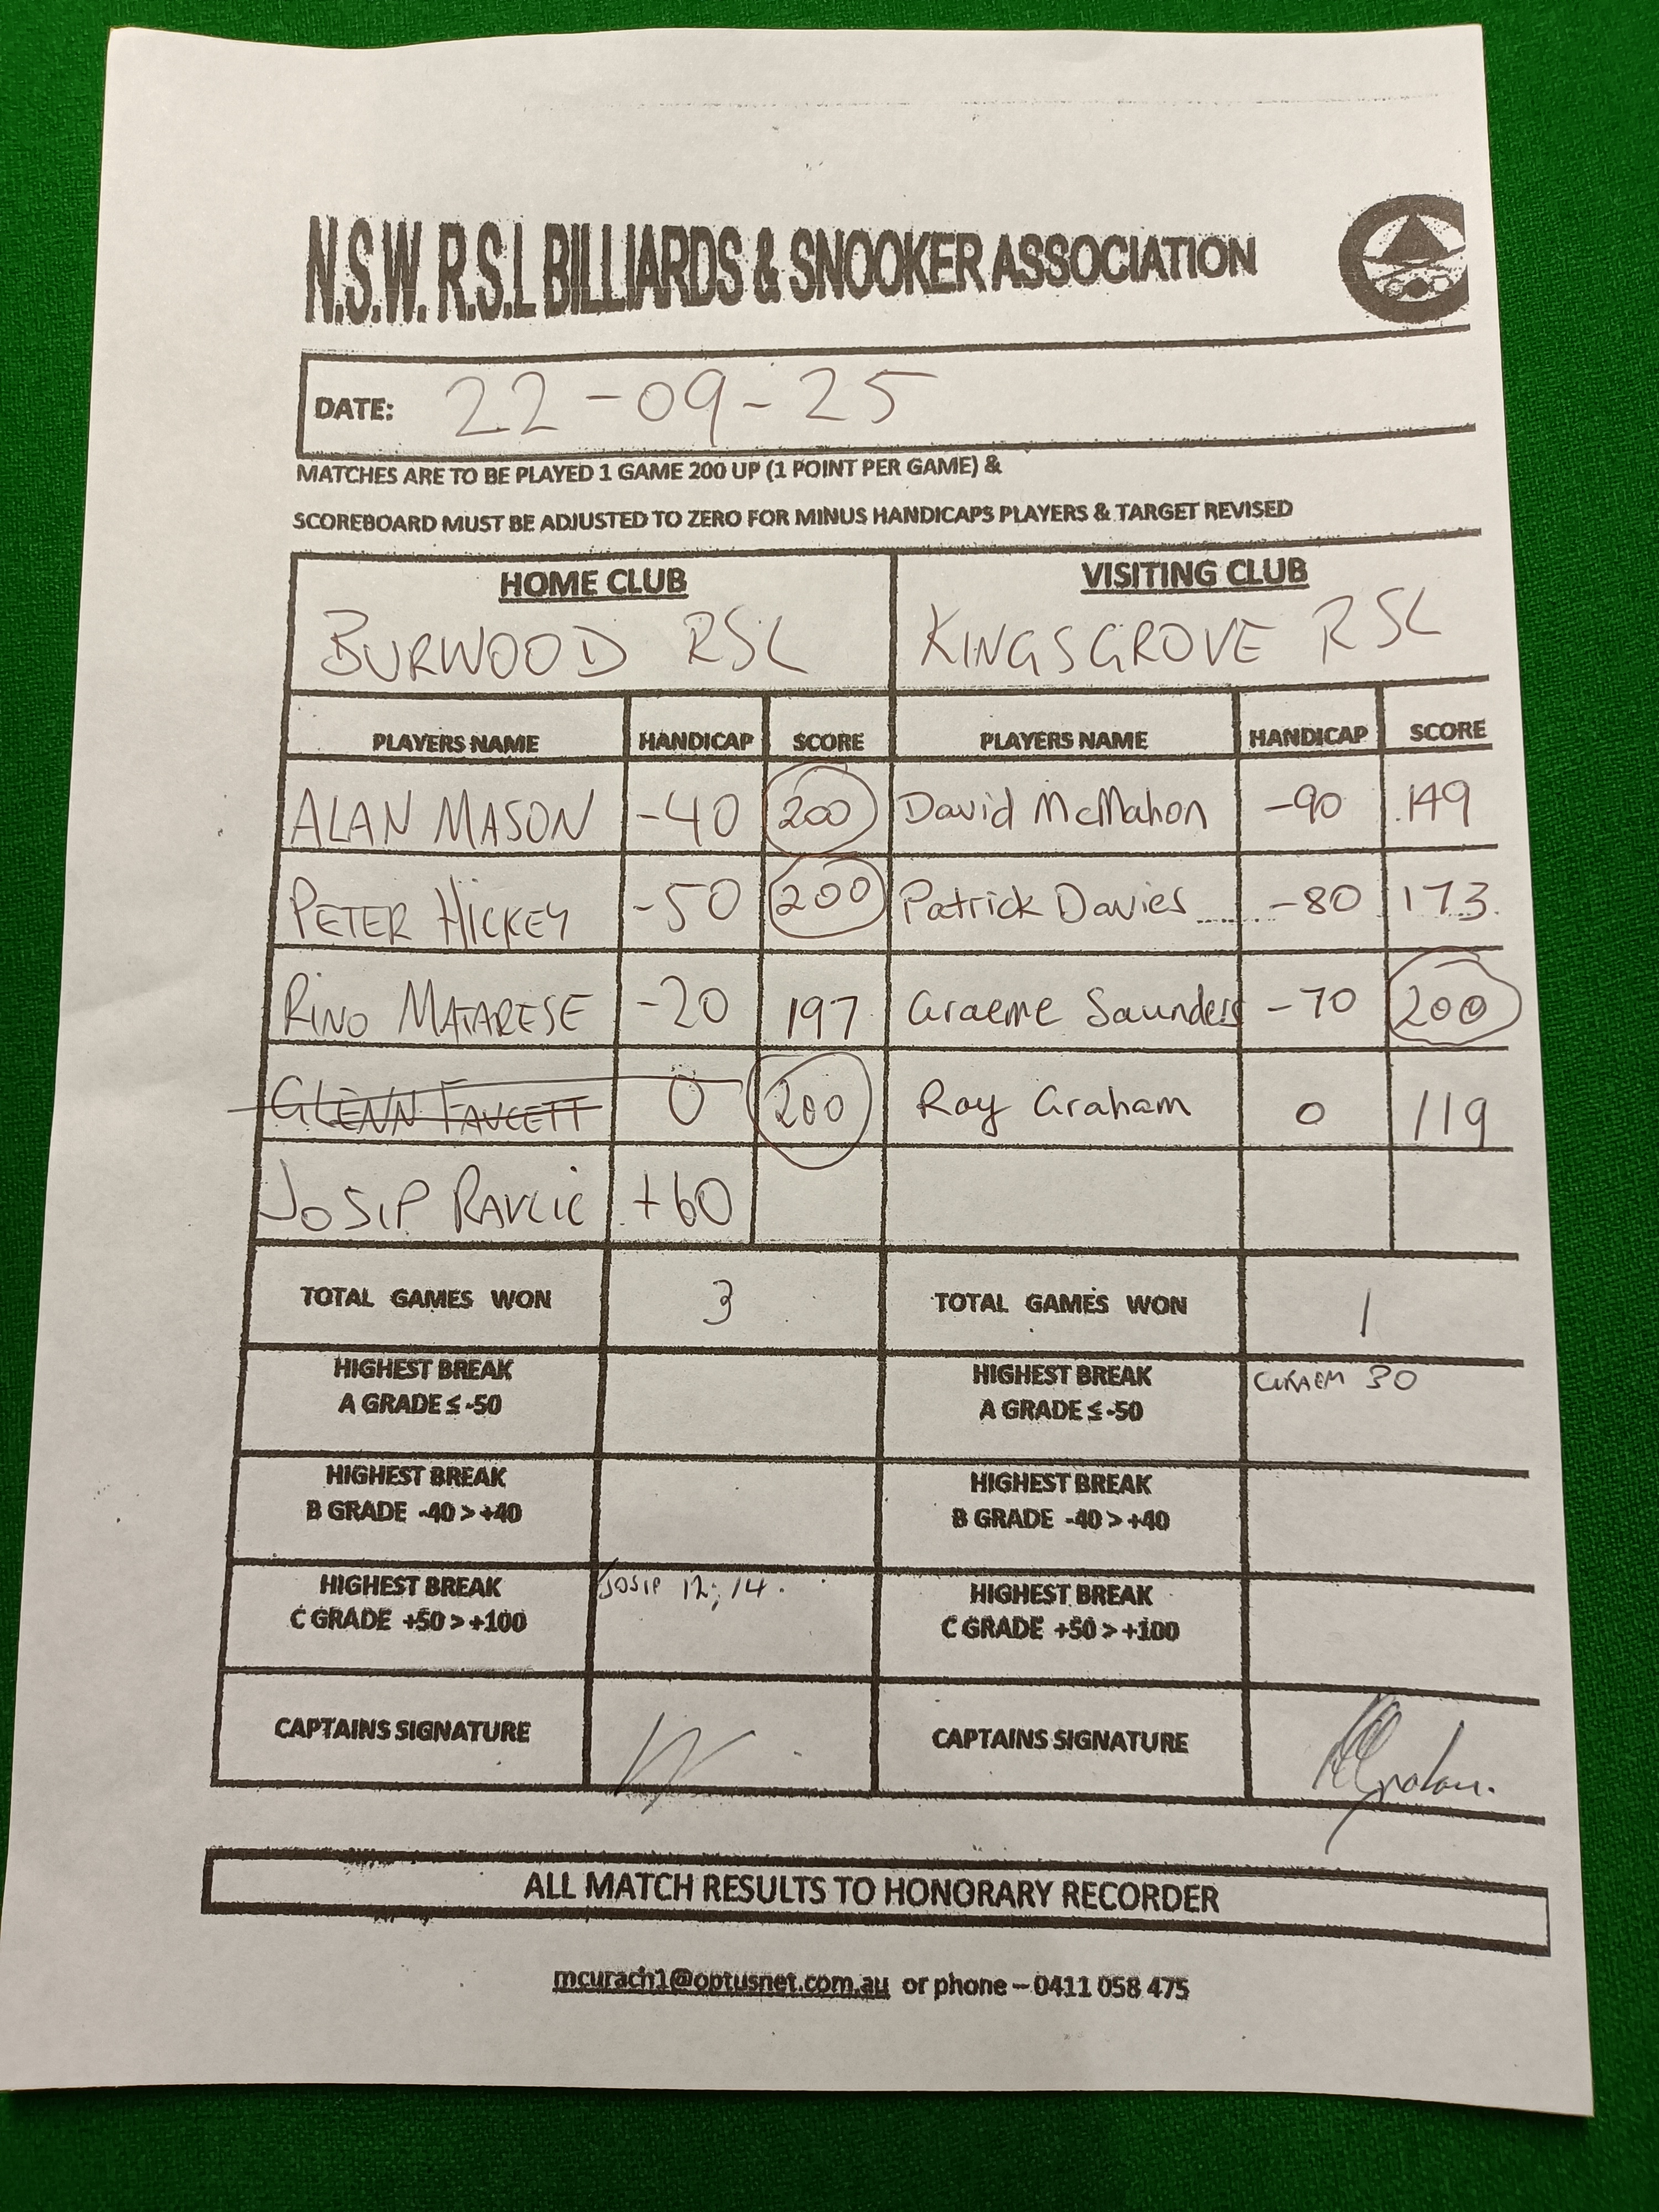 N.S.W. R.S.L BILLIARDS & SNOOKER ASSOCIATION
DATE: 22-09-25
MATCHES ARE TO BE PLAYED 1 GAME 200 UP (1 POINT PER GAME) &
SCOREBOARD MUST BE ADJUSTED TO ZERO FOR MINUS HANDICAPS PLAYERS & TARGET REVISED
HOME CLUB VISITING CLUB
BURWOOD RSL KINGSGROVE RSL
PLAYERS NAME HANDICAP SCORE PLAYERS NAME HANDICAP SCORE
ALAN MASON -40 200 David McMahon -90 149
PETER HICKEY -50 200 Patrick Davies -80 173
RINO MATARESE -20 197 Graeme Saunders -70 200
GLENN FAVCETT 0 200 Roy Graham 0 119
JOSIP RAVLIC +60
TOTAL GAMES WON 3 TOTAL GAMES WON 1
HIGHEST BREAK HIGHEST BREAK 30
A GRADE ≤ -50 A GRADE ≤ -50
HIGHEST BREAK HIGHEST BREAK
B GRADE -40 > +40 B GRADE -40 > +40
HIGHEST BREAK JOSIP 12, 14. HIGHEST BREAK
C GRADE +50 > +100 C GRADE +50 > +100
CAPTAINS SIGNATURE CAPTAINS SIGNATURE
ALL MATCH RESULTS TO HONORARY RECORDER
mcurach1@optusnet.com.au or phone – 0411 058 475